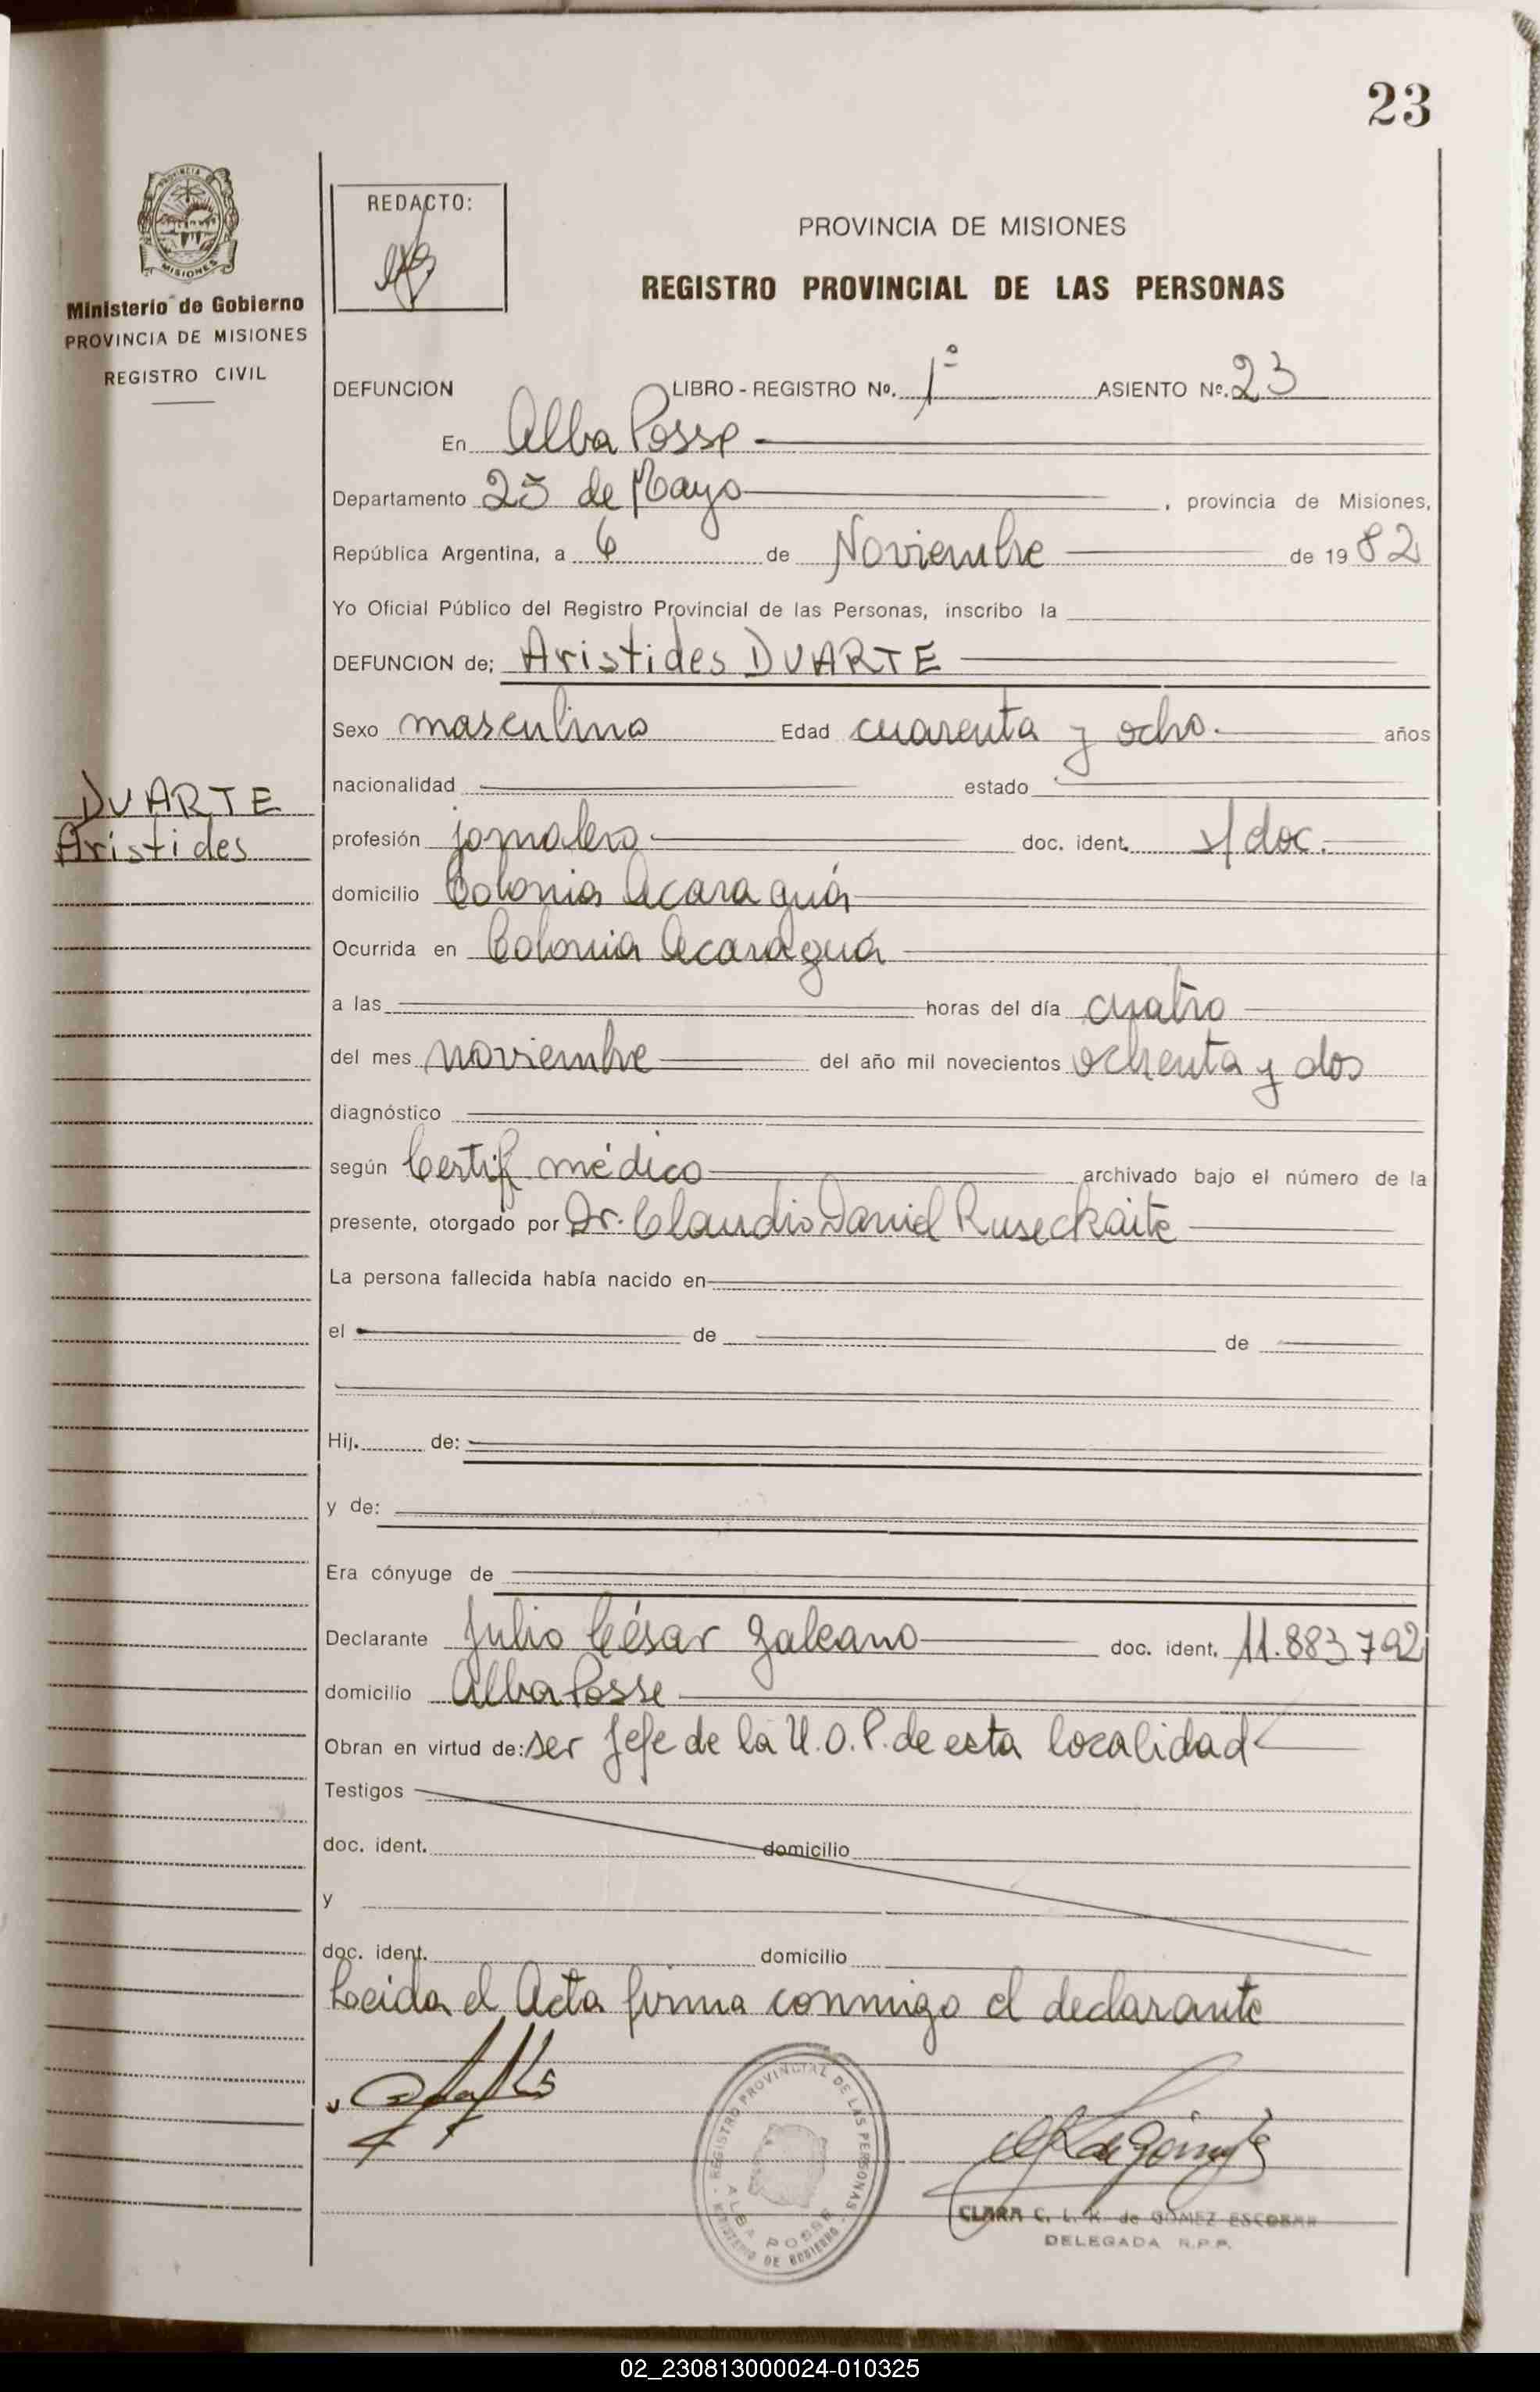 23
PROVINCIA DE
MISIONES
Ministerio de Gobierno
PROVINCIA DE MISIONES
REGISTRO CIVIL
REDACTO:
PROVINCIA DE MISIONES
REGISTRO PROVINCIAL DE LAS PERSONAS
DEFUNCION LIBRO - REGISTRO Nº. 1º ASIENTO Nº. 23
En Alba Posse
Departamento 25 de Mayo, provincia de Misiones,
República Argentina, a 6 de Noviembre de 1982
Yo Oficial Público del Registro Provincial de las Personas, inscribo la
DEFUNCION de: Aristides DUARTE
Sexo masculino Edad cuarenta y ocho. años
nacionalidad estado
DUARTE
Aristides
profesión jornalero doc. ident. s/doc.
domicilio Colonia Acaraguá
Ocurrida en Colonia Acaraguá
a las horas del día cuatro
del mes noviembre del año mil novecientos ochenta y dos
diagnóstico
según Certif médico archivado bajo el número de la
presente, otorgado por Dr. Claudio Daniel Ruseckaite
La persona fallecida había nacido en
el de de
Hij. de:
y de:
Era cónyuge de
Declarante Julio César Galeano doc. ident. 11.883.792
domicilio Alba Posse
Obran en virtud de: ser Jefe de la U.O.P. de esta localidad
Testigos
doc. ident. domicilio
y
doc. ident. domicilio
Leida el Acta firma conmigo el declarante
REGISTRO PROVINCIAL DE LAS PERSONAS
ALBA POSSE
MINISTERIO DE GOBIERNO
CLARA C. L. K. de GOMEZ ESCOBAR
DELEGADA R.P.P.
02_230813000024-010325